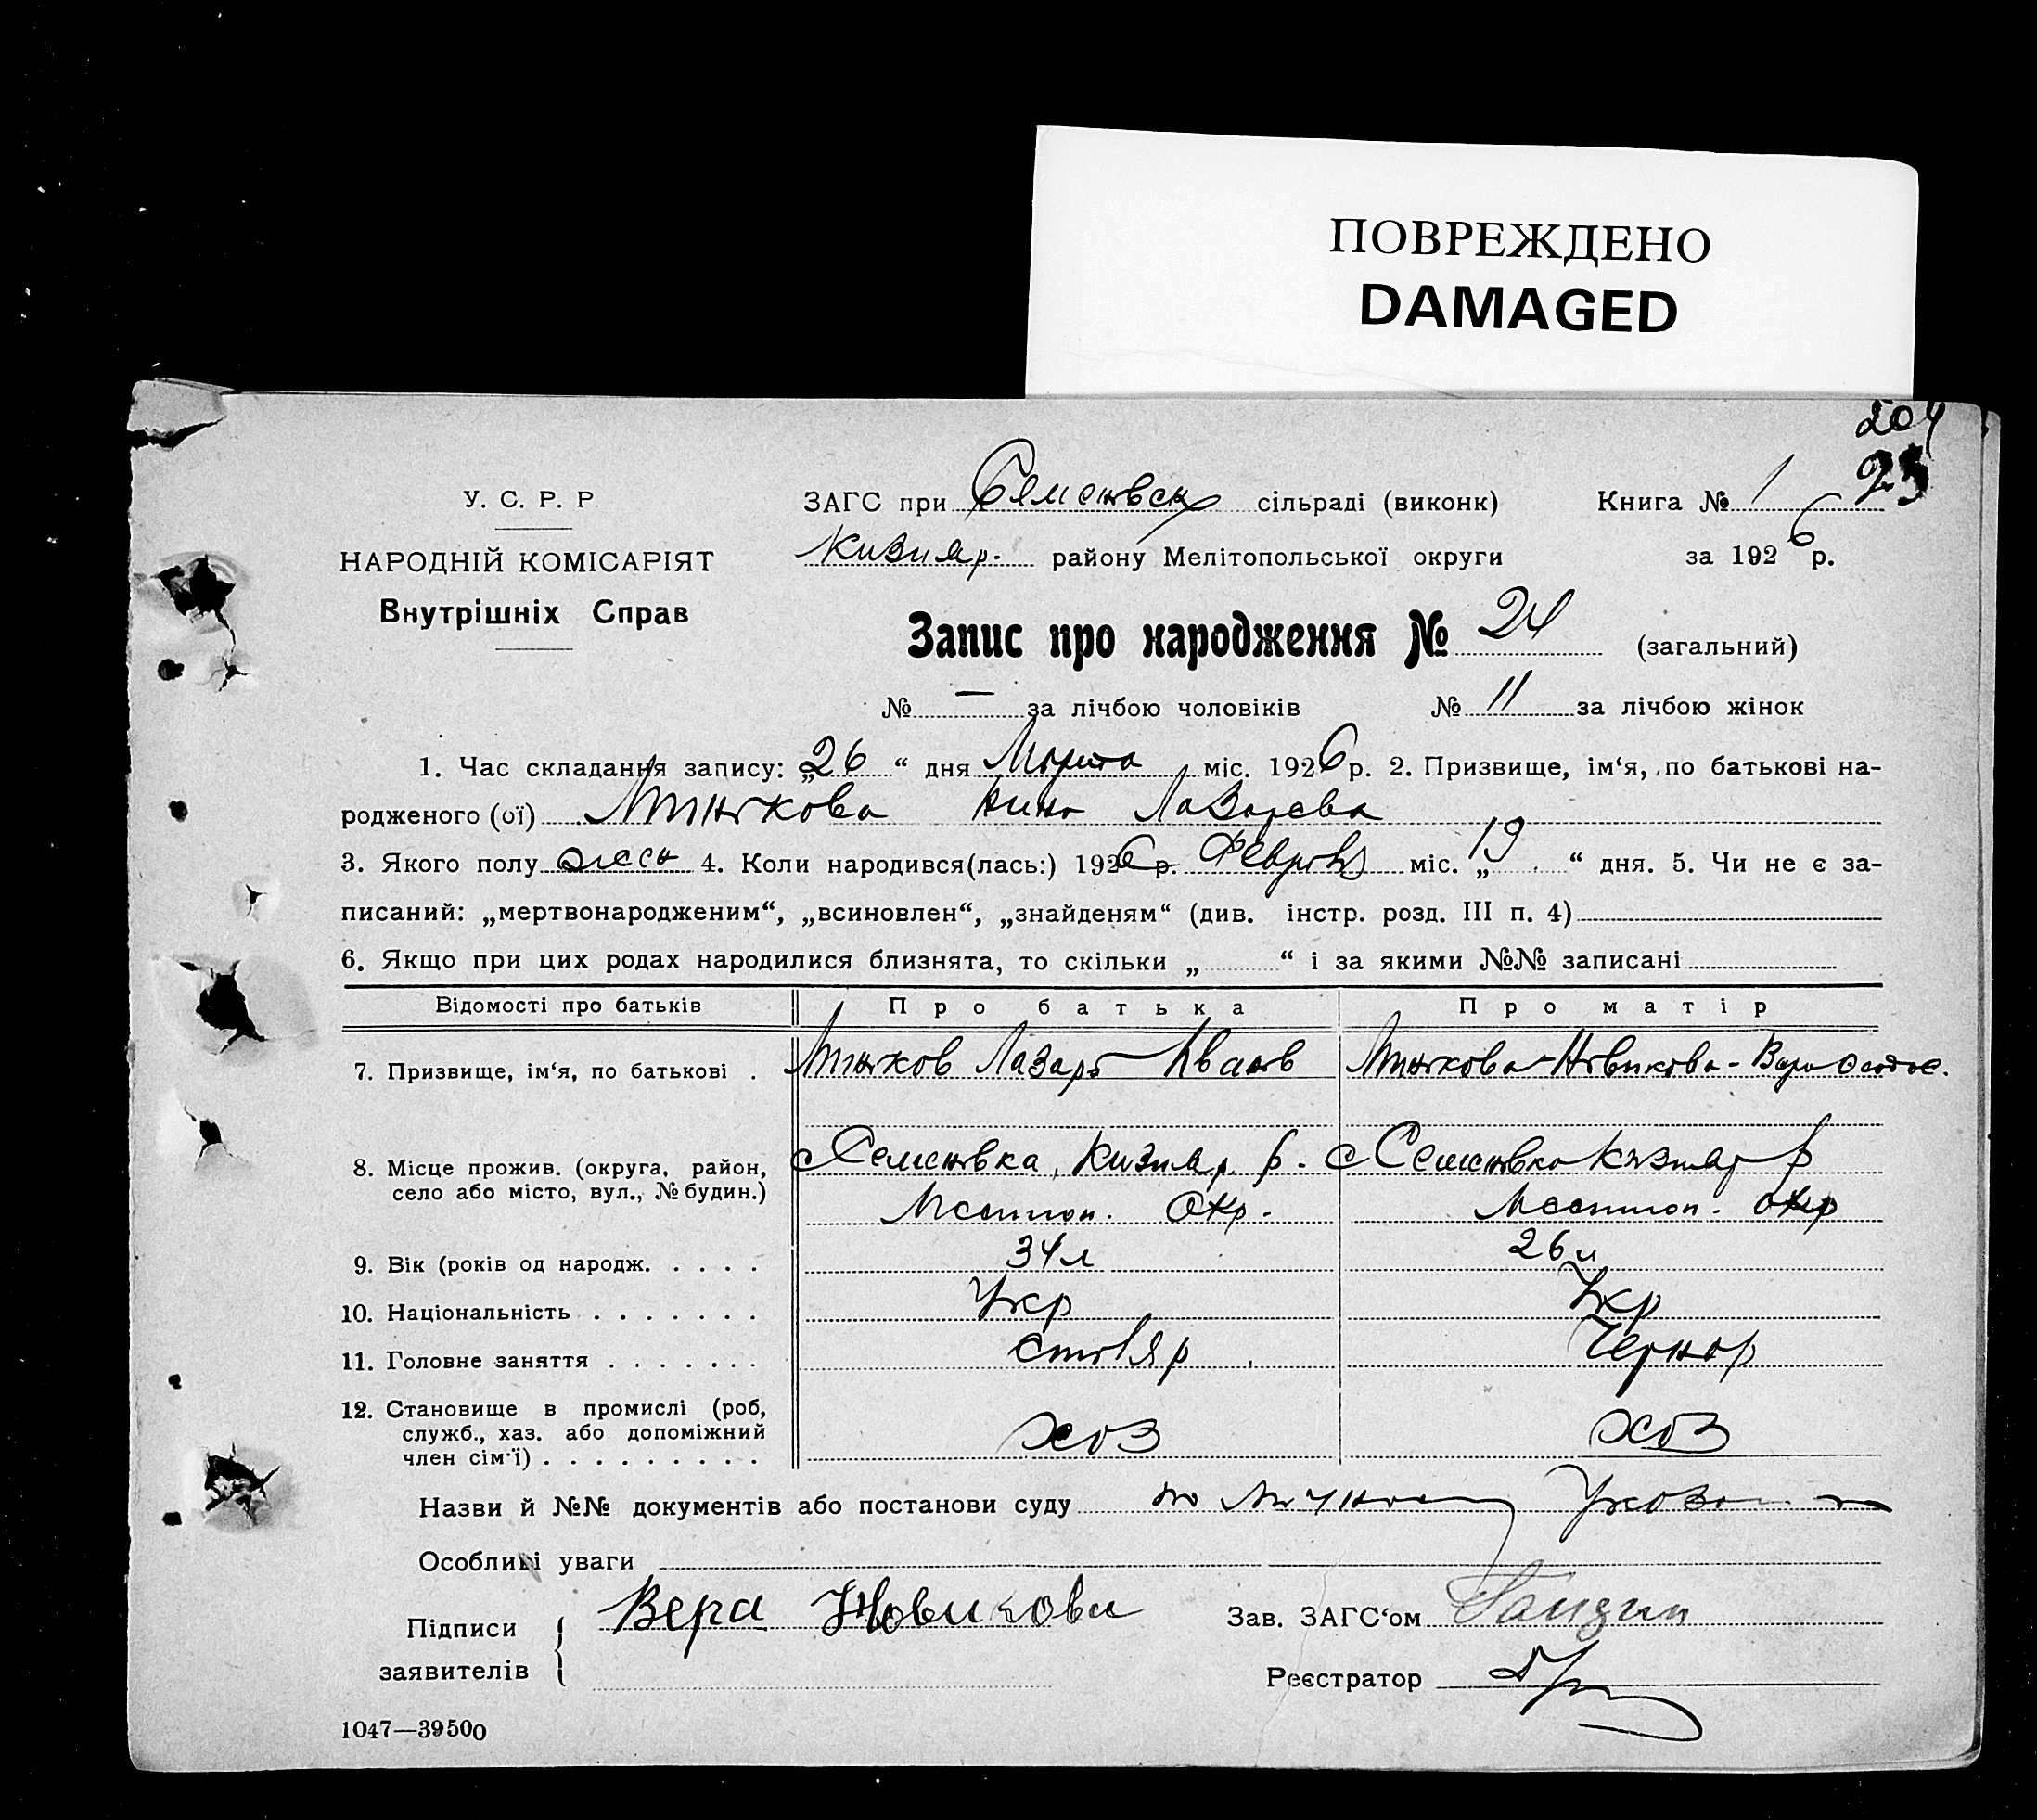 ПОВРЕЖДЕНО
DAMAGED
204
23
У. С. Р. Р.
НАРОДНІЙ КОМІСАРІЯТ
Внутрішніх Справ
ЗАГС при Семеновск сільраді (виконк) Книга № 1
Кизияр. району Мелітопольської округи за 1926 р.
Запис про народження № 24 (загальний)
№ — за лічбою чоловіків № 11 за лічбою жінок
1. Час складання запису: „26“ дня Марта міс. 1926 р. 2. Призвище, ім‘я, по батькові на-
родженого (ої) Нина Лазарева
3. Якого полу женск 4. Коли народився(лась:) 1926 р. Февраль міс. „19“ дня. 5. Чи не є за-
писаний: „мертвонародженим“, „всиновлен“, „знайденям“ (див. інстр. розд. III п. 4)
6. Якщо при цих родах народилися близнята, то скільки „ “ і за якими №№ записані
Відомості про батьків Про батька Про матір
7. Призвище, ім‘я, по батькові . Лазарь Иванов Новикова - Вера Феодос.
8. Місце прожив. (округа, район, с Семеновка, Кизияр. р. с Семеновка Кизияр р
село або місто, вул., № будин.) Мелитоп. Окр. Мелитоп. окр
9. Вік (років од народж. . . . . 34 л 26 л
10. Національність . . . . . . . Укр Укр
11. Головне заняття . . . . . . . столяр Чернор
12. Становище в промислі (роб,
служб., хаз. або допоміжний хоз хоз
член сім‘ї) . . . . . . . . .
Назви й №№ документів або постанови суду по
Особливі уваги
Підписи Вера Новикова Зав. ЗАГС‘ом
заявителів Реєстратор
1047—39500